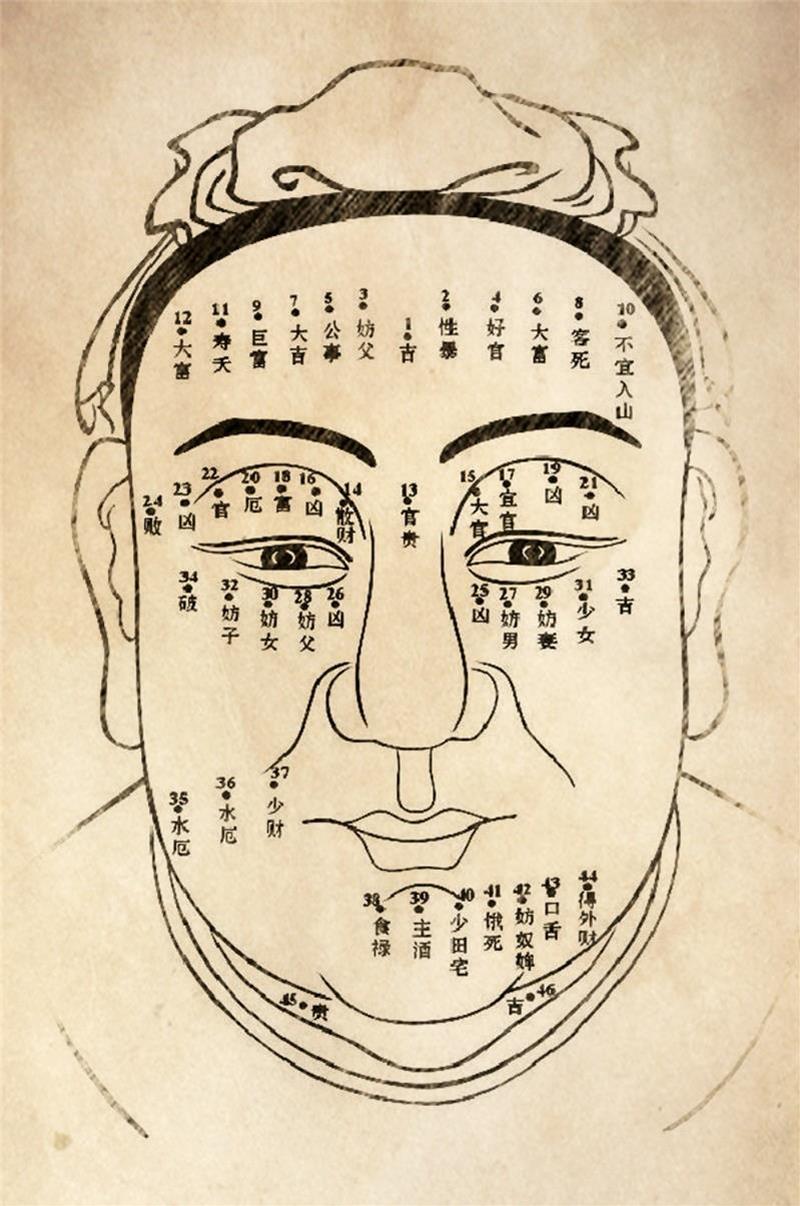 12 大富
11 寿夭
9 巨富
7 大吉
5 公事
3 妨父
1 吉
2 性暴
4 好官
6 大富
8 客死
10 不宜入山
24 败
23 凶
22 官
20 厄
18 富
16 凶
14 散财
13 官贵
15 大官
17 宜官
19 凶
21 凶
34 破
32 妨子
30 妨女
28 妨父
26 凶
25 凶
27 妨男
29 妨妻
31 少女
33 吉
35 水厄
36 水厄
37 少财
38 食禄
39 主酒
40 少田宅
41 饿死
42 妨奴婢
43 口舌
44 得外财
45 贵
46 吉